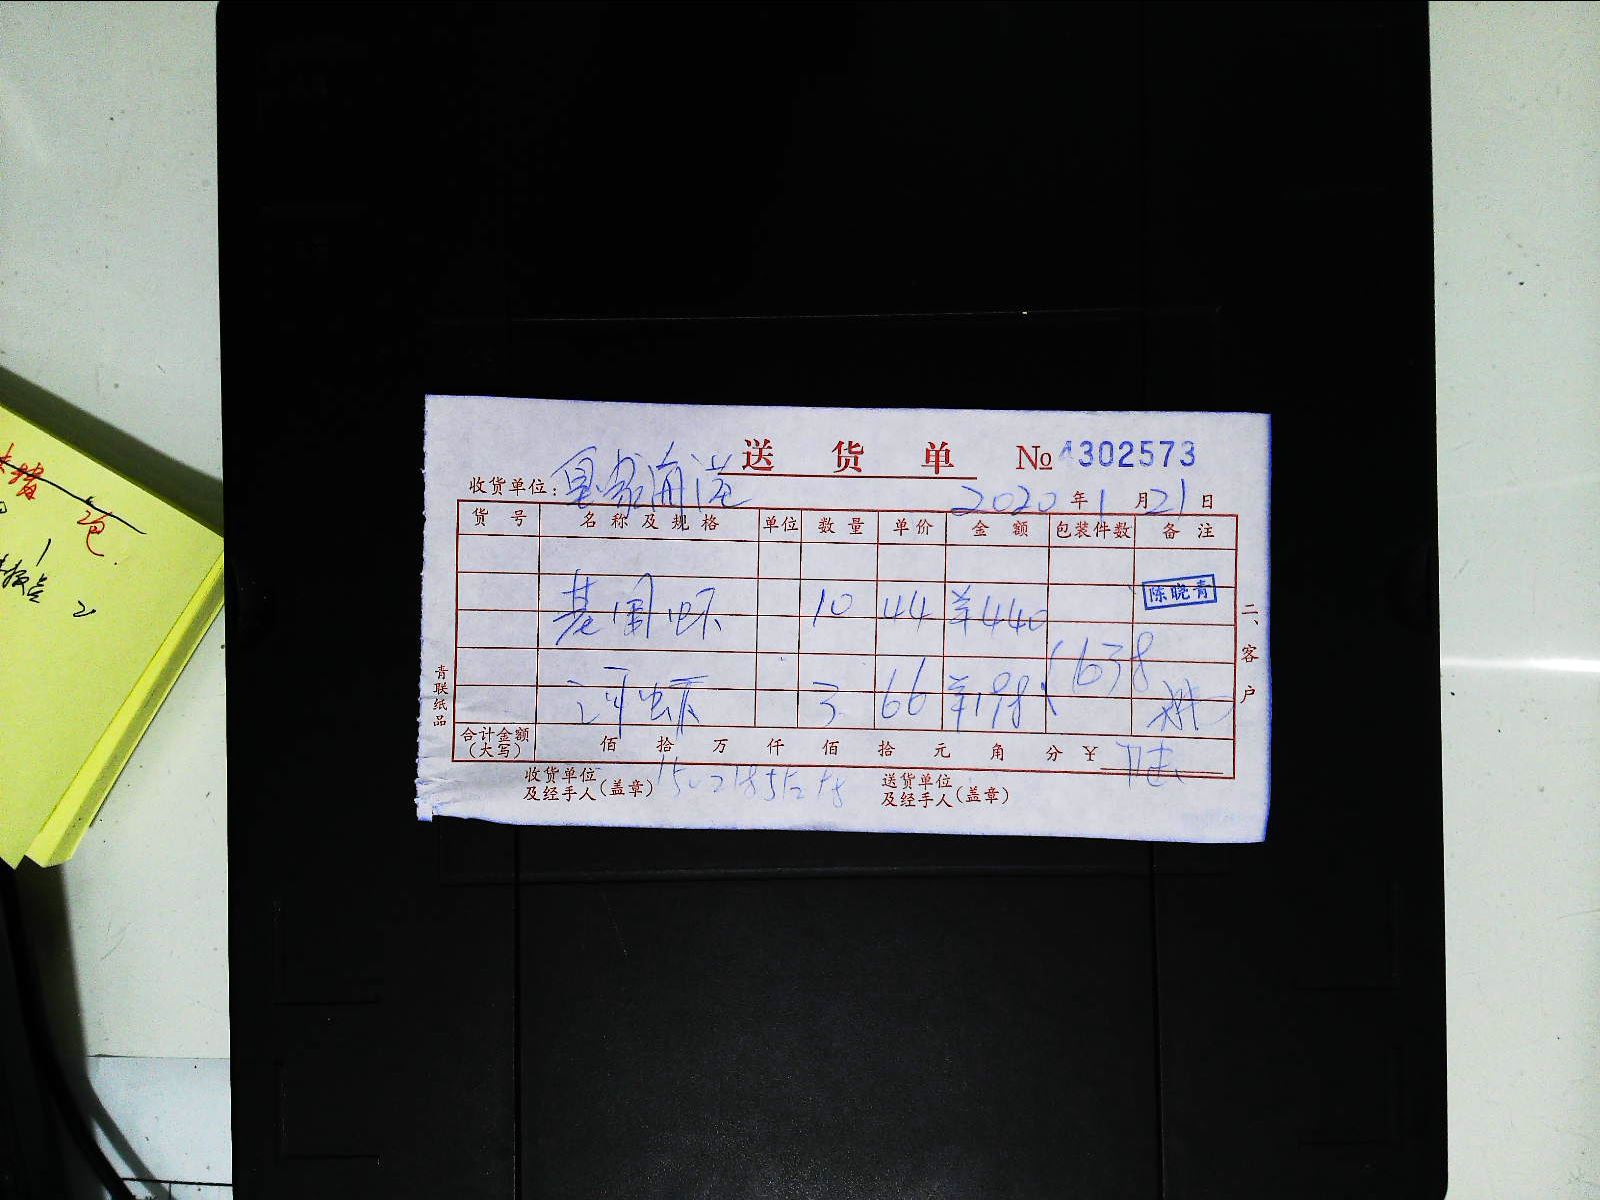 送货单 №4302573
收货单位：
2020年1月21日
货号 名称及规格 单位 数量 单价 金额 包装件数 备注
陈晓青
基围虾 10 44 ¥440
638
河虾 3 66 ¥198
合计金额（大写） 佰 拾 万 仟 佰 拾 元 角 分 ¥
收货单位及经手人（盖章） 送货单位及经手人（盖章）
二、客户
青联纸品
2